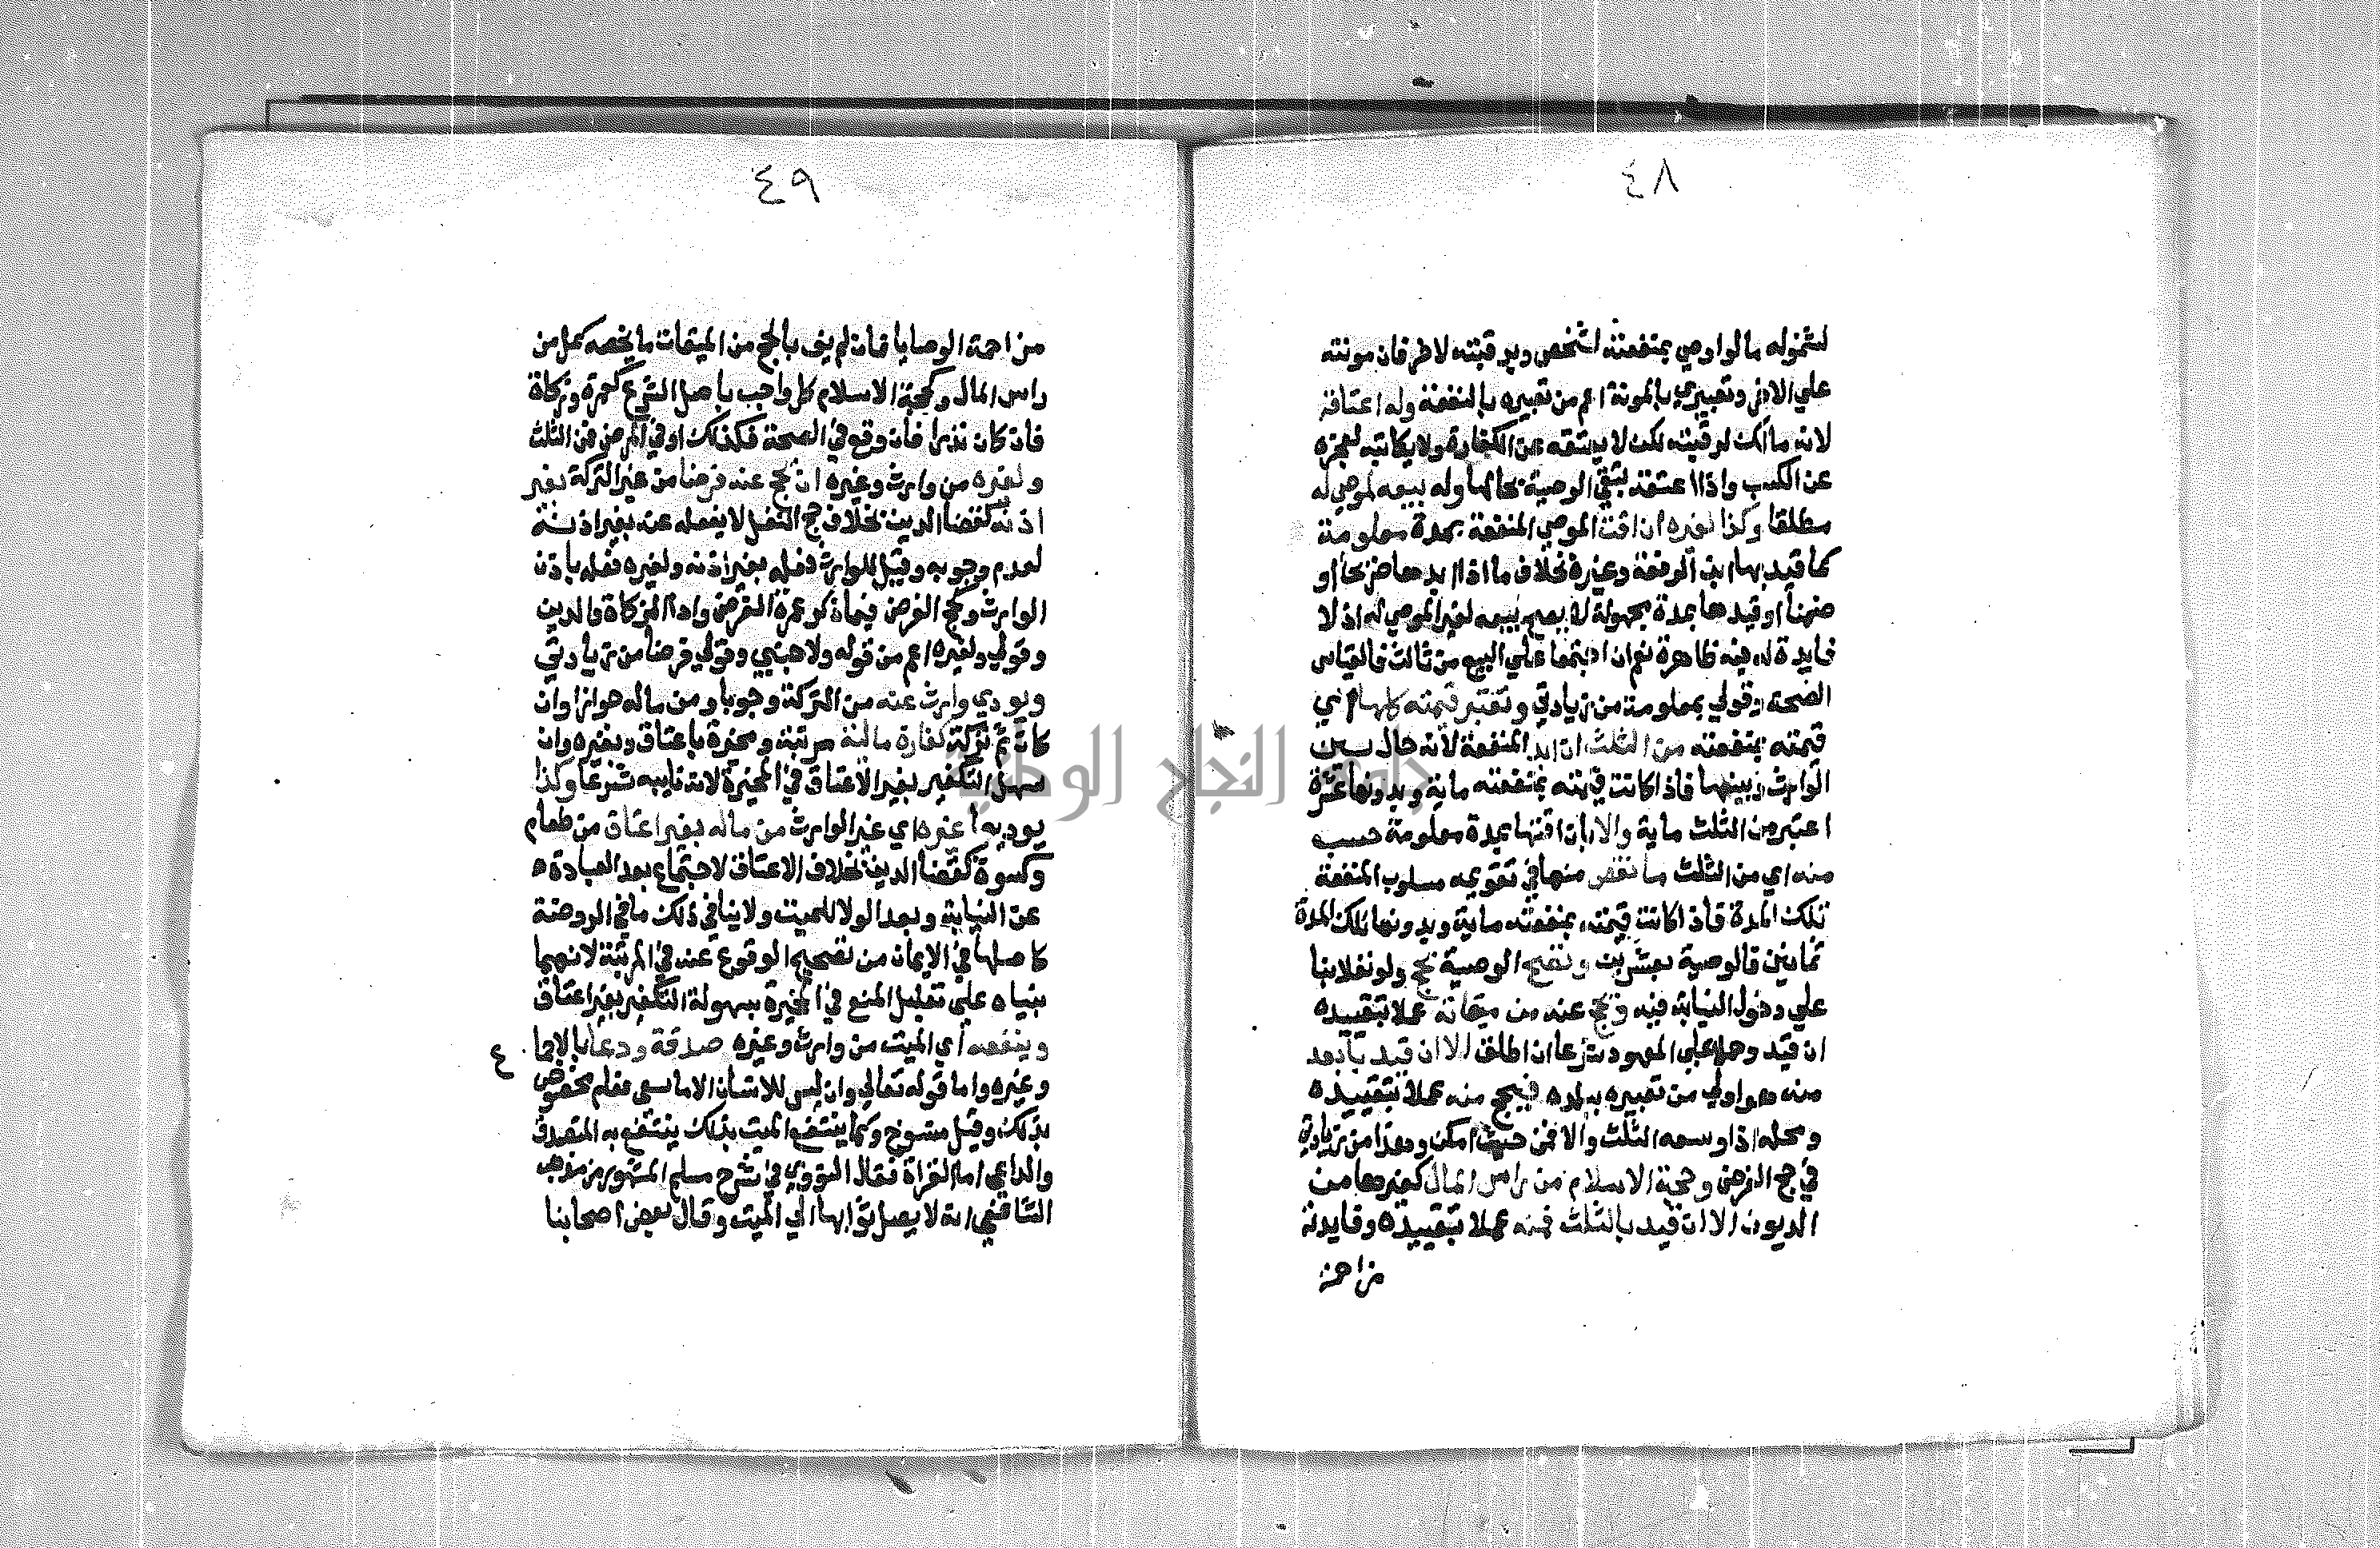 ٤٨
لشموله ما لو اوصي بمنفعته لشخص وبرقبته لاخر فان مونته
علي الاخر وتعبيري بالمونة اعم من تعبيره بالنفقة وله اعتاقه
لانه مالك لرقبته لكن لا يعتقه عن الكفارة ولا يكاتبه لعجزه
عن الكسب واذا اعتقه تبقي الوصية بحالها وله بيعه لموصي له
مطلقا وكذا لغيره ان اقت الموصي المنفعة بمدة معلومة
كما قيد بها ابن الرفعة وغيره بخلاف ما اذا ابدها صريحا او
ضمنا او قيدها بمدة مجهولة لا يصح بيعه لغير الموصي له اذ لا
فايدة له فيه ظاهرة نعم ان اجتمعا علي البيع من ثالث فالقياس
الصحة وقولي بمعلومة من زيادتي وتعتبر قيمته كلها اي
قيمته بمنفعته من الثلث ان ابد المنفعة لانه حال بين
الوارث وبينها فاذا كانت قيمته بمنفعته ماية وبدونها عشرة
اعتبر من الثلث ماية والا بان اقتها بمدة معلومة حسب
منه اي من الثلث ما نقص منها في تقويمه مسلوب المنفعة
تلك المدة فاذا كانت قيمته بمنفعته ماية وبدونها تلك المدة
ثمانين فالوصية بعشرين وتصح الوصية بحج ولو نفلا بنا
علي دخول النيابة فيه ويحج عنه من ميقاته عملا بتقييده
ان قيد وحملا علي المعهود شرعا ان اطلق الا ان قيد بابعد
منه هو اولي من تعبيره ببلده فيحج منه عملا بتقييده
ومحله اذا وسعه الثلث والا فمن حيث امكن وهذا من زيادتي
في حج الفرض وحجة الاسلام من راس المال كغيرها من
الديون الا ان قيد بالثلث فمنه عملا بتقييده وفايدته
مزاحمة
٤٩
مزاحمة الوصايا فان لم يف بالحج من الميقات ما يخصه كمل من
راس المال وكحجة الاسلام كل واجب باصل الشرع كعمرة وزكاة
فان كان نذرا فان وقع في الصحة فكذلك او في المرض فمن الثلث
ولغيره من وارث وغيره ان يحج عنه فرضا من غير التركة بغير
اذنه كقضا الدين بخلاف حج النفل لا يفعله عنه بغير اذنه
لعدم وجوبه وقيل للوارث فعله بغير اذنه ولغيره فعله باذن
الوارث وكحج الفرض فيما ذكر عمرة الفرض واداء الزكاة والدين
وقولي ولغيره اعم من قوله ولاجنبي وقولي فرضا من زيادتي
ويودي وارث عنه من التركة وجوبا ومن ماله جوازا وان
كان ثم تركة كفارة مالية مرتبة ومخيرة باعتاق وبغيره وان
سهل التكفير بغير الاعتاق في المخيرة لانه نايبه شرعا وكذا
يوديه اغيره اي غير الوارث من ماله بغير اعتاق من طعام
وكسوة كقضا الدين بخلاف الاعتاق لاجتماع بعد العبادة
عن النيابة وبعد الولا للميت ولا ينافي ذلك ما في الروضة
كاصلها في الايمان من تصحيح الوقوع عنه في المرتبة لانهما
بنياه علي تعليل المنع في المخيرة بسهولة التكفير بغير اعتاق
وينفعه اي الميت من وارث وغيره صدقة ودعا بالاجما
ع
وغيره واما قوله تعالي وان ليس للانسان الا ما سعي فعلم مخصوص
بذلك وقيل منسوخ وكما ينتفع الميت بذلك ينتفع به المتصدق
والداعي اما القراة فقال النووي في شرح مسلم المشهور من مذهب
الشافعي انه لا يصل ثوابها الي الميت وقال بعض اصحابنا
جامعة النجاح الوطنية